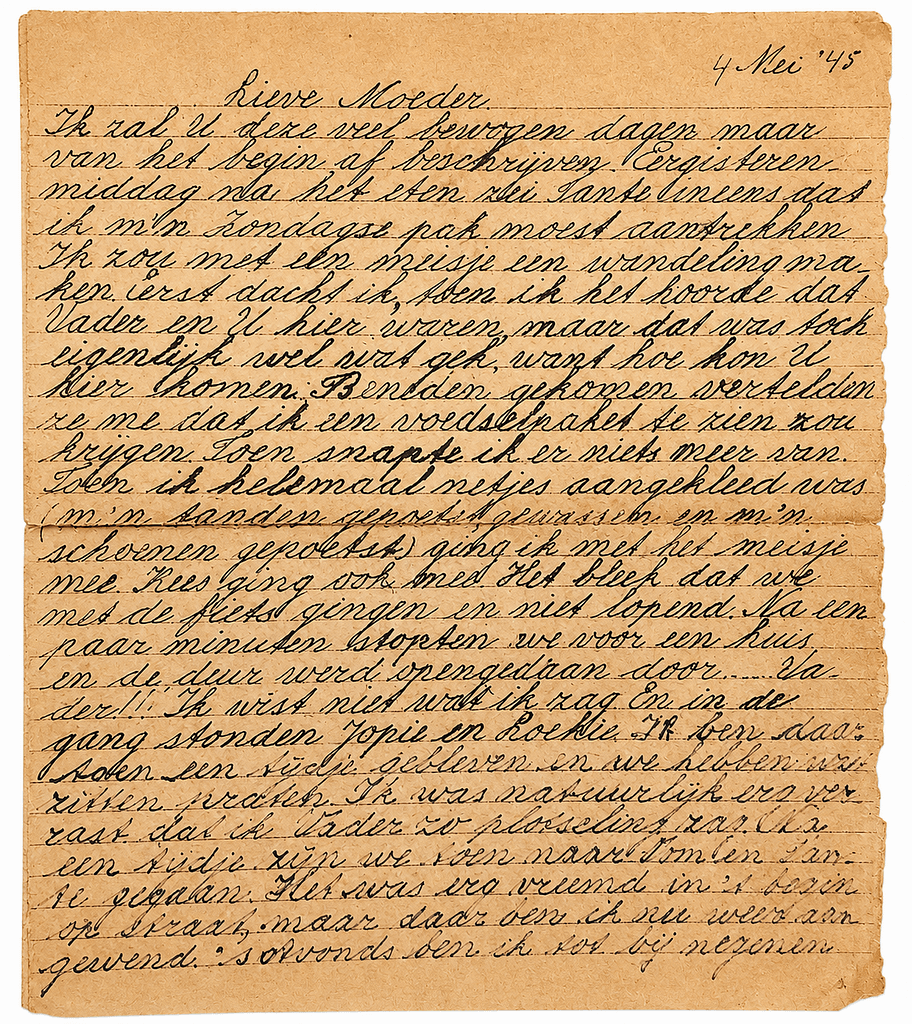 4 Mei '45
Lieve Moeder
Ik zal U deze veel bewogen dagen maar
van het begin af beschrijven. Eergisteren-
middag na het eten zei Tante ineens dat
ik m'n Zondagse pak moest aantrekken
Ik zou met een meisje een wandeling ma-
ken. Eerst dacht ik, toen ik het hoorde dat
Vader en U hier waren, maar dat was toch
eigenlijk wel wat gek, want hoe kon U
hier komen. Beneden gekomen vertelden
ze me dat ik een voedselpaket te zien zou
krijgen. Toen snapte ik er niets meer van.
Toen ik helemaal netjes aangekleed was
(m'n tanden gepoetst, gewassen en m'n
schoenen gepoetst) ging ik met het meisje
mee. Kees ging ook mee. Het bleek dat we
met de fiets gingen en niet lopend. Na een
paar minuten stopten we voor een huis
en de deur werd opengedaan door..... Va-
der!!! Ik wist niet wat ik zag. En in de
gang stonden Jopie en Loekie. Ik ben daar
toen een tijdje gebleven en we hebben wat
zitten praten. Ik was natuurlijk erg ver-
rast dat ik Vader zo ploeseling zag. Na
een tijdje zijn we toen naar Oom en Tan-
te gegaan. Het was erg vreemd in 't begin
op straat, maar daar ben ik nu weer aan
gewend. 's Avonds ben ik tot bij negenen